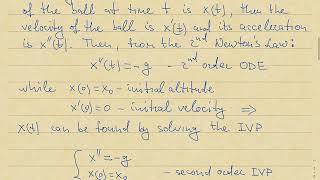 of the ball at time t is x(t), then the
velocity of the ball is x'(t) and its acceleration
is x''(t). Then, from the 2nd Newton's Law:
x''(t) = -g - 2nd order ODE
while x(0) = x₀ - initial altitude
x'(0) = 0 - initial velocity ⇒
x(t) can be found by solving the IVP
{ x'' = -g
x(0) = x₀ - second order IVP